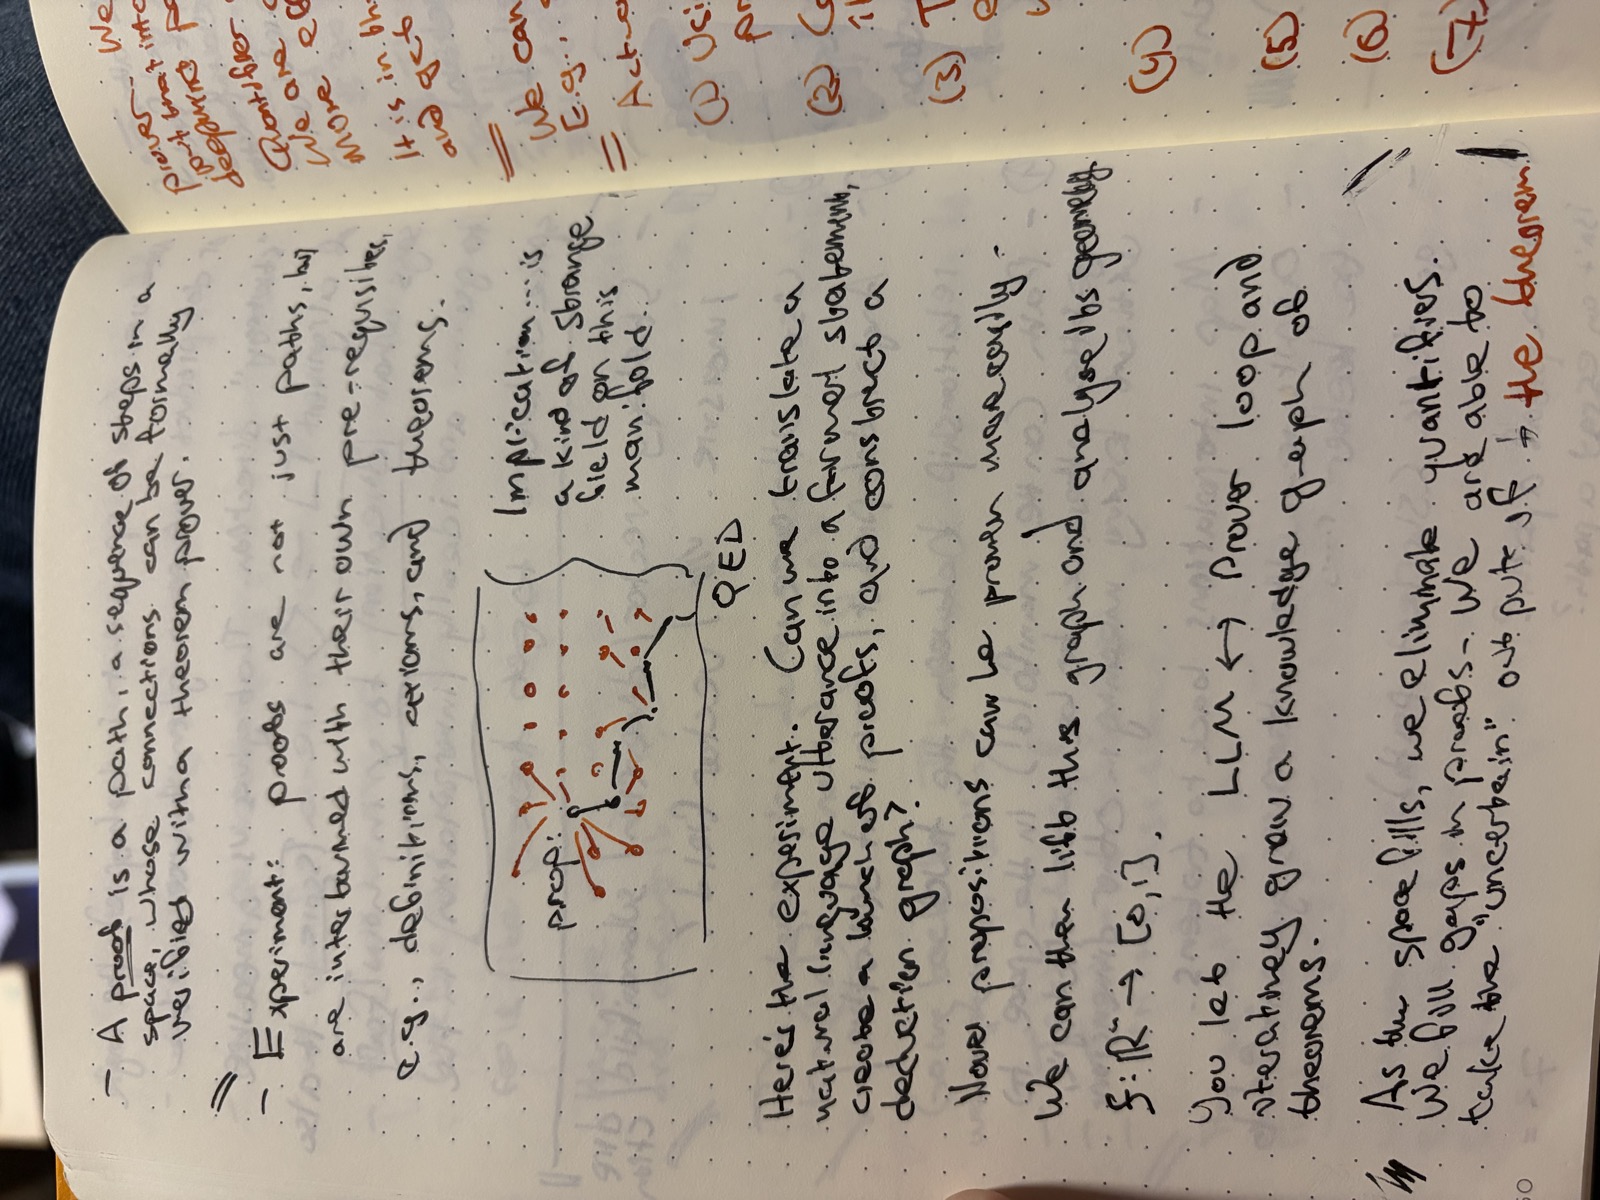 - A proof is a path, a sequence of steps in a
space, whose connections can be formally
verified with a theorem prover.
- Experiment: proofs are not just paths, but
are intertwined with their own pre-requisites,
e.g., definitions, axioms, and theorems.
prop:
QED
Implication... is
a kind of strange
field on this
manifold.
Here's the experiment. Can we translate a
natural language utterance into a formal statement,
create a bunch of proofs, and construct a
deduction graph?
Novel propositions can be proven more easily.
We can then lift this graph and analyse its geometry
f: ℝⁿ → [0,1].
You let the LLM ↔ Prover loop and
iteratively grow a knowledge graph of
theorems.
As the space fills, we eliminate quantifiers.
We fill gaps in proofs - we are able to
take the "uncertain" output of the theorem
prover. We
put that into
Quantifier
We are
more
It is in
and get
We can
E.g.,
(1)
(2)
(3)
(4)
(5)
(6)
(7)